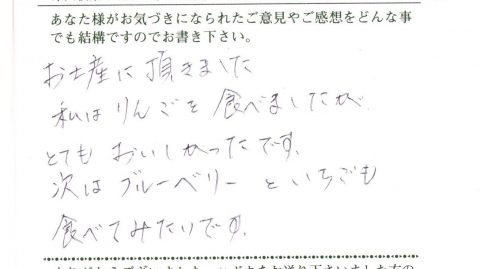 あなた様がお気づきになられたご意見やご感想をどんな事
でも結構ですのでお書き下さい。
お土産に頂きました
私はりんごを食べましたが
とてもおいしかったです。
次はブルーベリーといちごも
食べてみたいです。